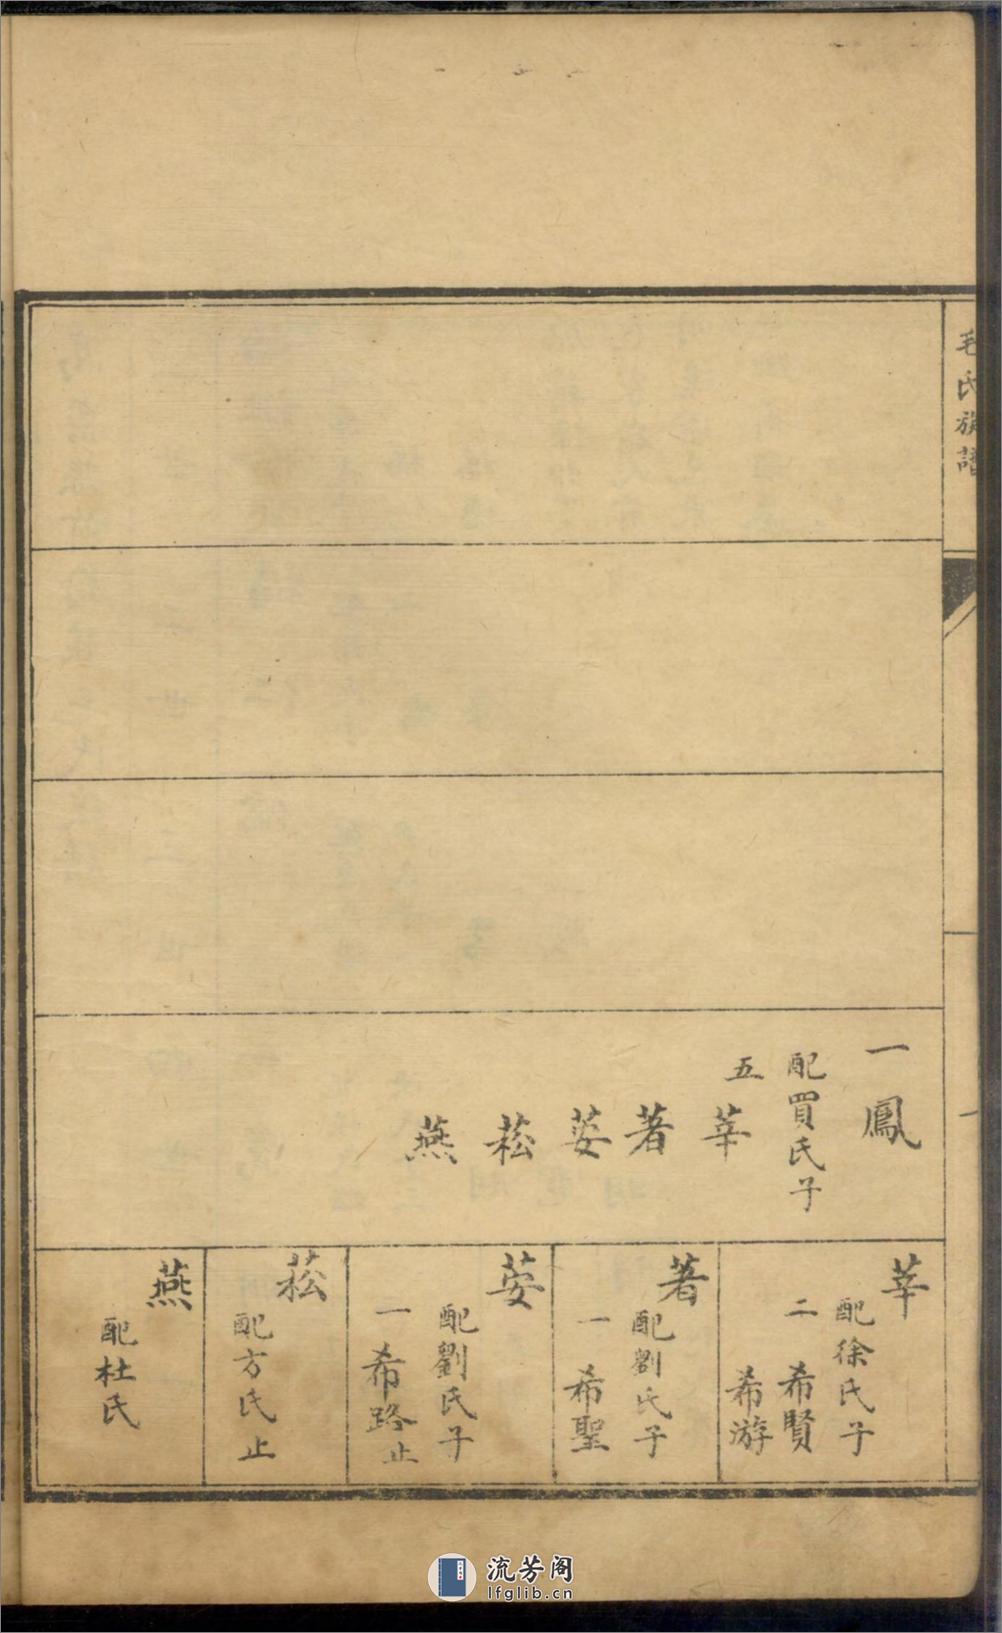 毛氏族譜
一鳳
配買氏子
五 莘
著
荌
菘
燕
莘
配徐氏子
二 希賢
希游
著
配劉氏子
一 希聖
荌
配劉氏子
一 希路止
菘
配方氏止
燕
配杜氏
流芳阁
lfglib.cn